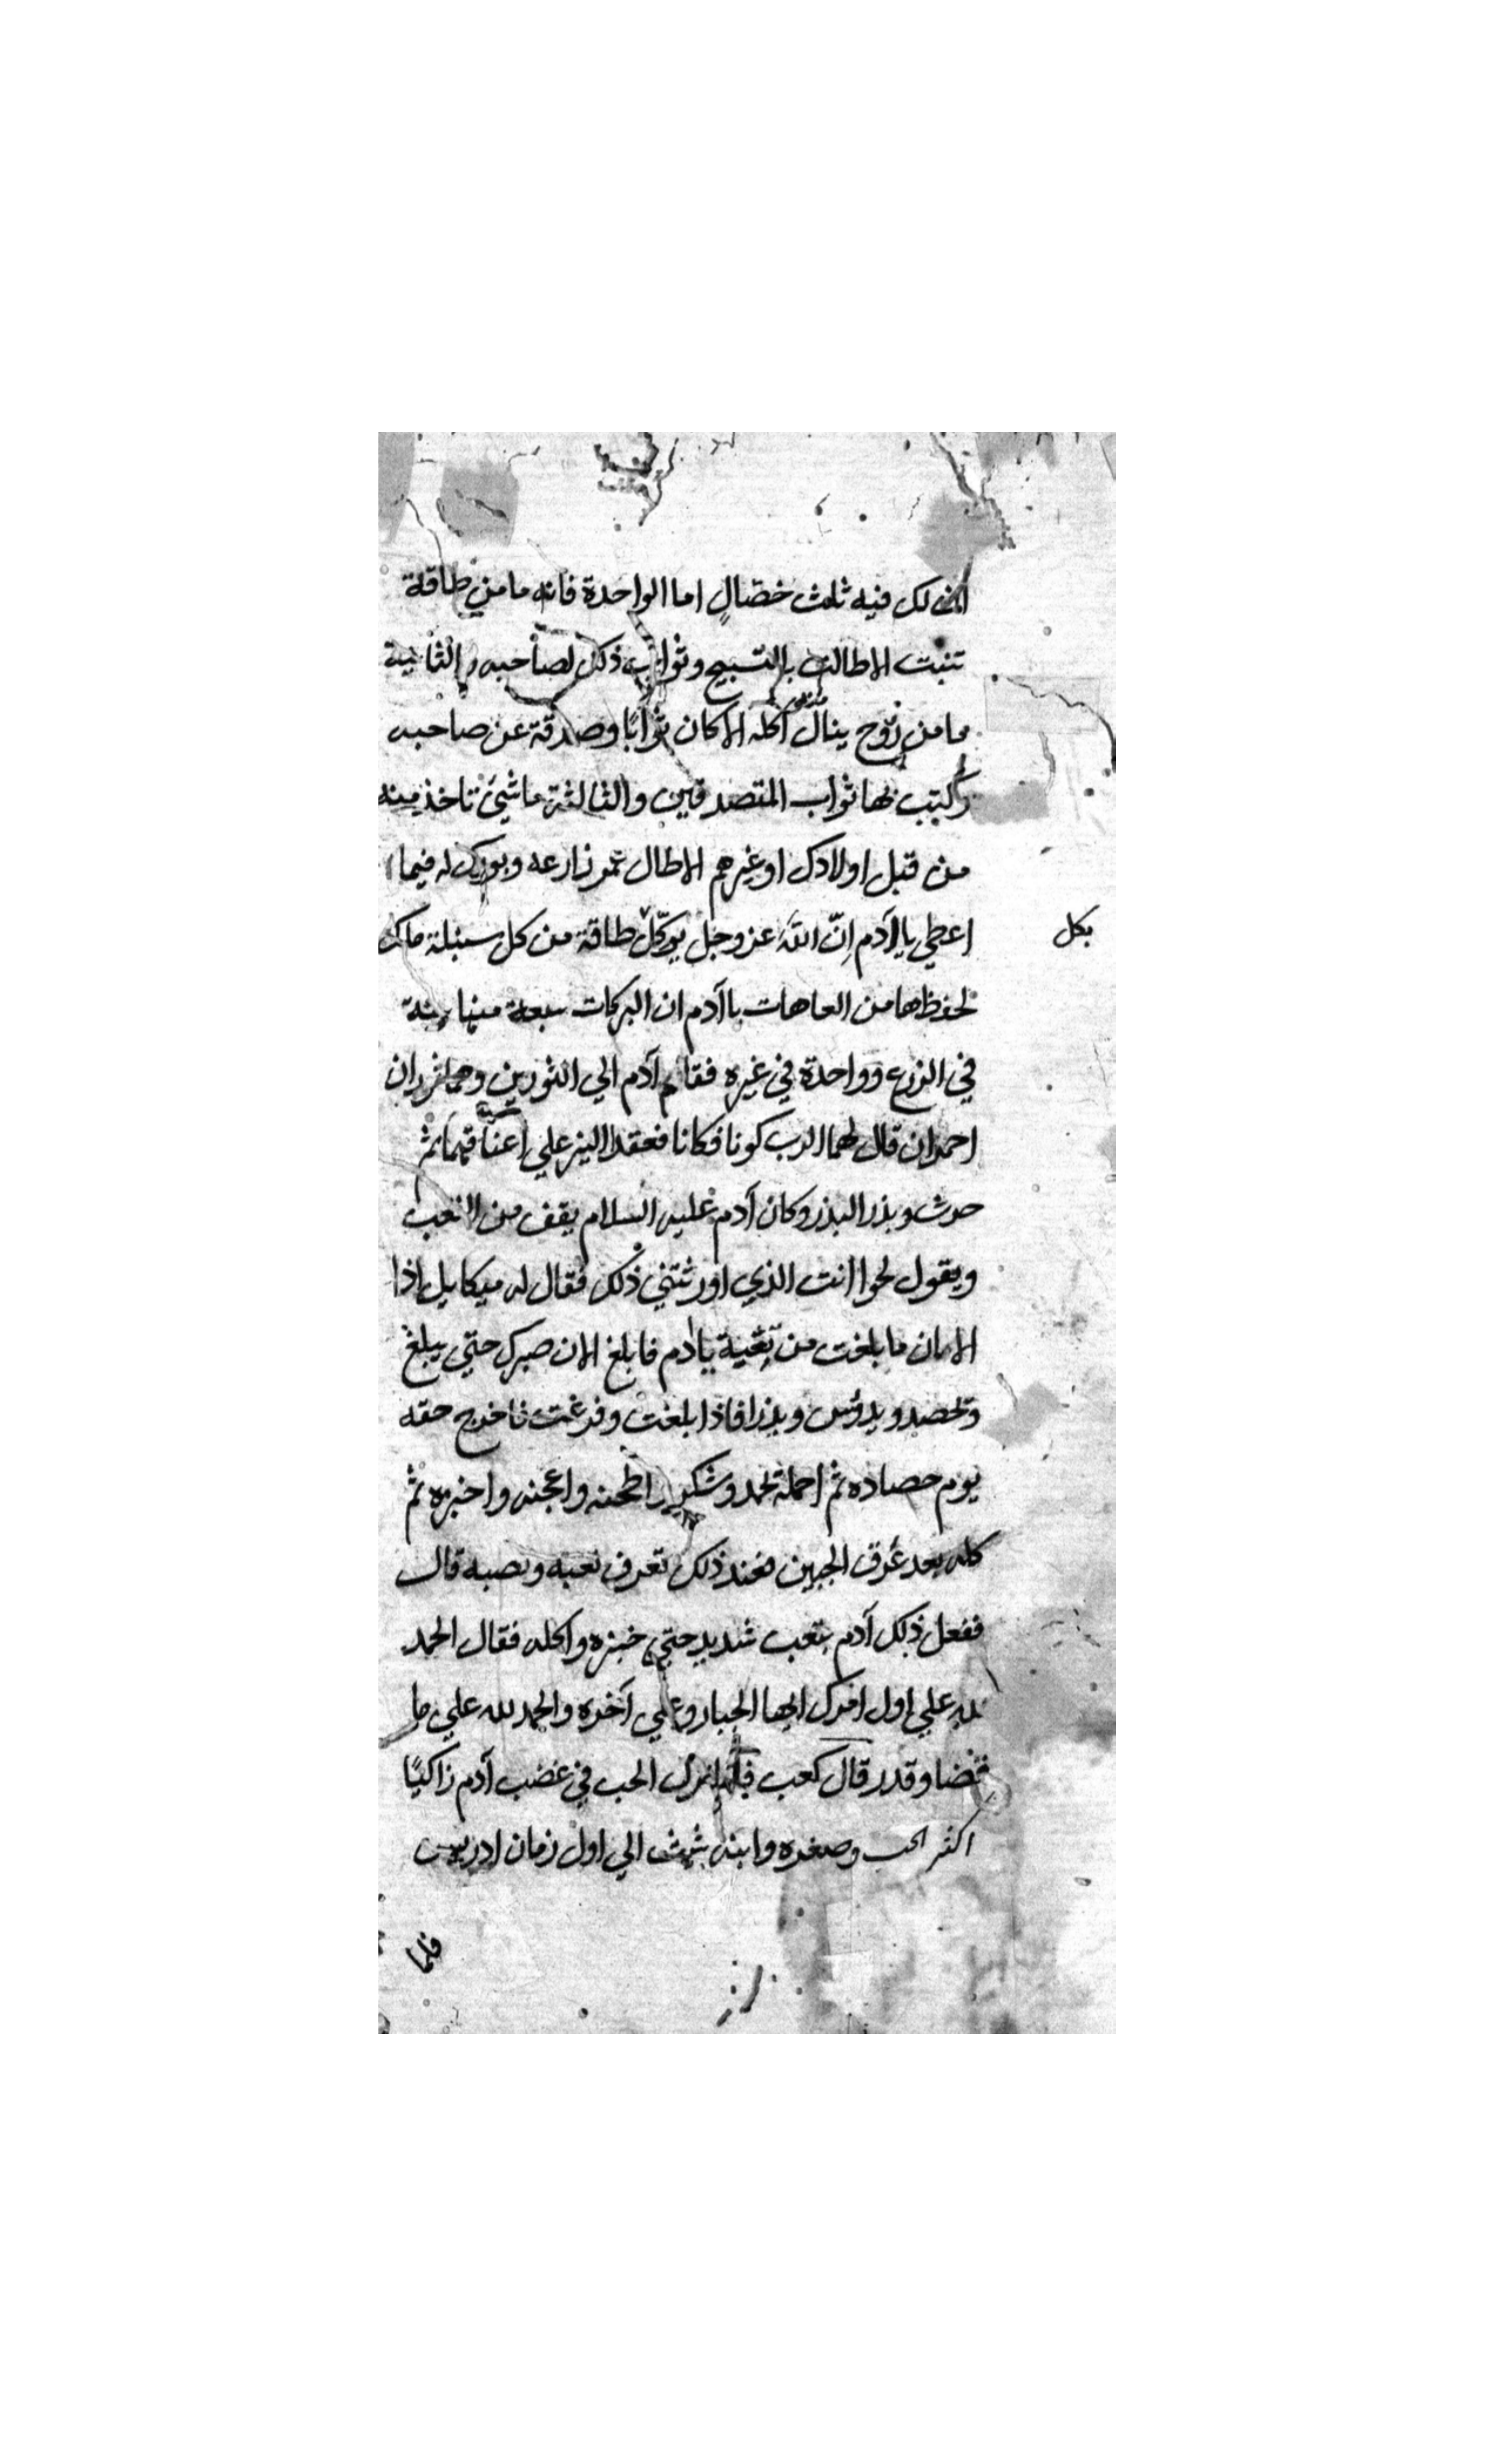 ان لك فيه ثلث خصال اما الواحدة فانه ما من طاقة
تنبت الا طالت بالتسبيح وثواب ذلك لصاحبه والثانية
ما من زوج ينال من اكله الا كان ثوابًا وصدقة عن صاحبه
وكتب بها ثواب المتصدقين والثالثة ما شيئ تاخذ منه
من قبل اولادك او غيرهم الا طال عمر زارعه وبورك له فيما
اعطي يا ادم اِنّ اللّه عز وجل يوكّل طاقة من كل سنبلة ملك
بكل
لحفظها من العاهات يا آدم ان البركات سبعة منها ستة
في الزرع وواحدة في غيره فقام آدم الي الثورين وهما ثوران
احمران قال لهما الرب كونا فكانا فعقد النير علي اعناقهما ثم
حرث وبذر البذر وكان آدم عليه السلام يقف من التعب
ويقول لحوا انت الذي اورثتني ذلك فقال له ميكايل اذا
الامان ما بلغت من بقية يادم فابلغ الان صبرك حتي يبلغ
وتحصد ويدؤس ويذرا فاذا بلغت وفرغت فاخرج حقه
يوم حصاده ثم احمله بحمد وشكر واطحنه واعجنه واخبزه ثم
كله بعد عَرق الجبين فعند ذلك تعرف تعبه ونصبه قال
ففعل ذلك آدم بتعب شديد حتي خبزه واكله فقال الحمد
لله علي اول امرك ايها الجبار وعلي آخره والحمد لله علي ما
قضا وقدر قال كعب الحب في غضب آدم زاكيًا
اكثر الحب وصغره وابنه شيث الي اول زمان ادريس
فلما